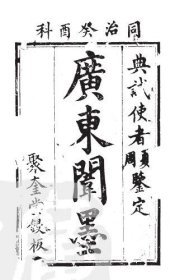 同治癸酉科
典試使者周鑒定
廣東闈墨
聚奎堂鐫板